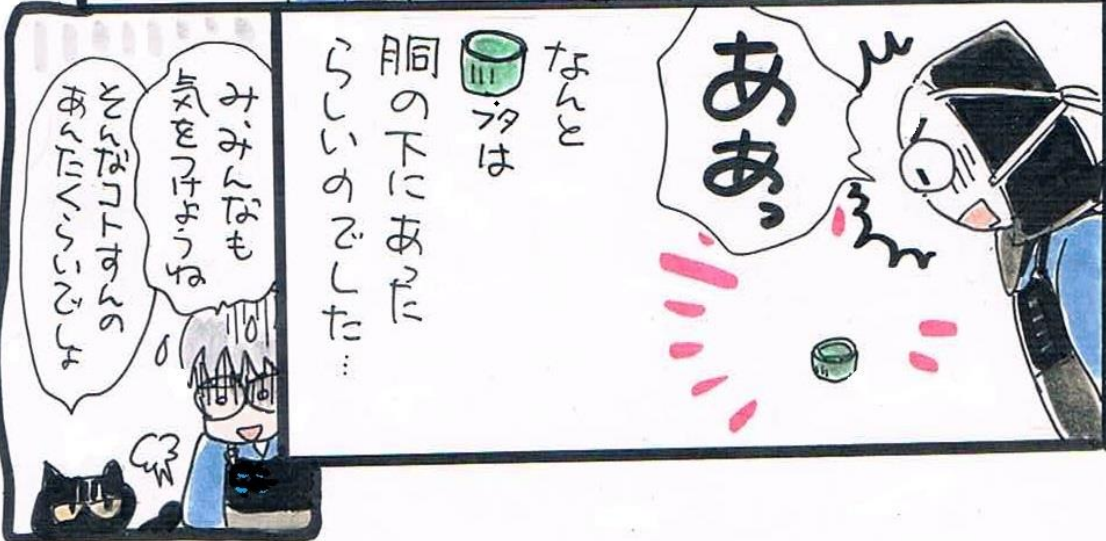 ああっ
なんと
フタは
胴の下にあった
らしいのでした…
み、みんなも
気をつけようね
そんなコトすんの
あんたくらいでしょ